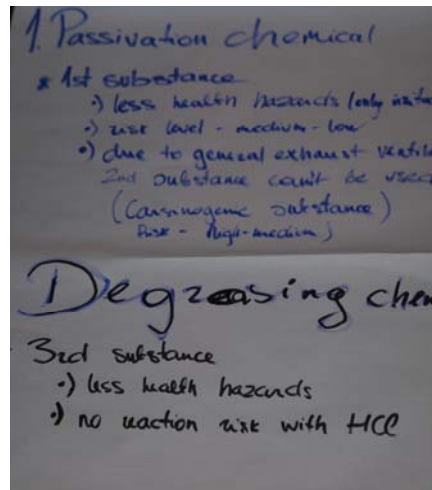 1. Passivation chemical
* 1st substance
•) less health hazards (only irritat
•) risk level - medium - low
•) due to general exhaust ventila
2nd substance can't be used
(Carsinogenic substance)
Risk - high-medium)
Degreasing chem
3rd substance
•) less health hazards
•) no reaction risk with HCl